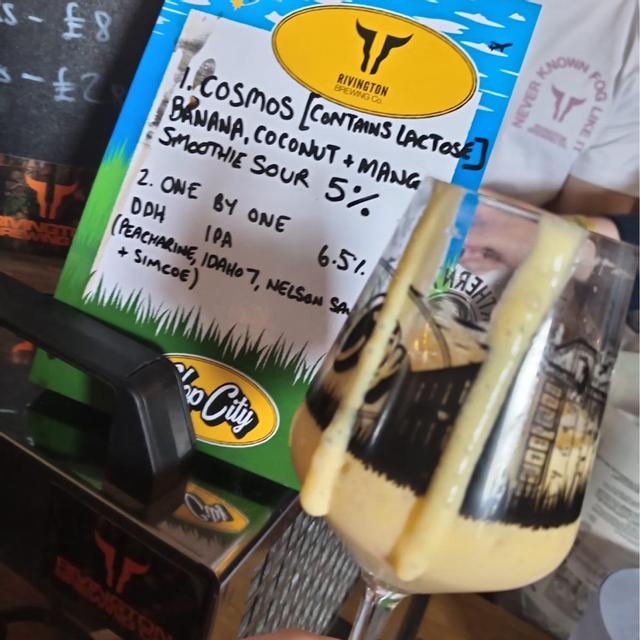 - £8
RIVINGTON
BREWING Co.
NEVER KNOWN FOG LIKE IT
1. COSMOS [CONTAINS LACTOSE]
BANANA, COCONUT + MANG
SMOOTHIE SOUR 5%
2. ONE BY ONE
DDH IPA 6.5%
(PEACHARINE, IDAHO 7, NELSON SA
+ SIMCOE)
Hop City
RIVINGTON